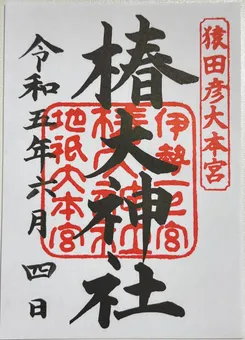 猿田彦大本宮
椿大神社
伊勢一之宮
地祇大本宮
令和五年六月四日